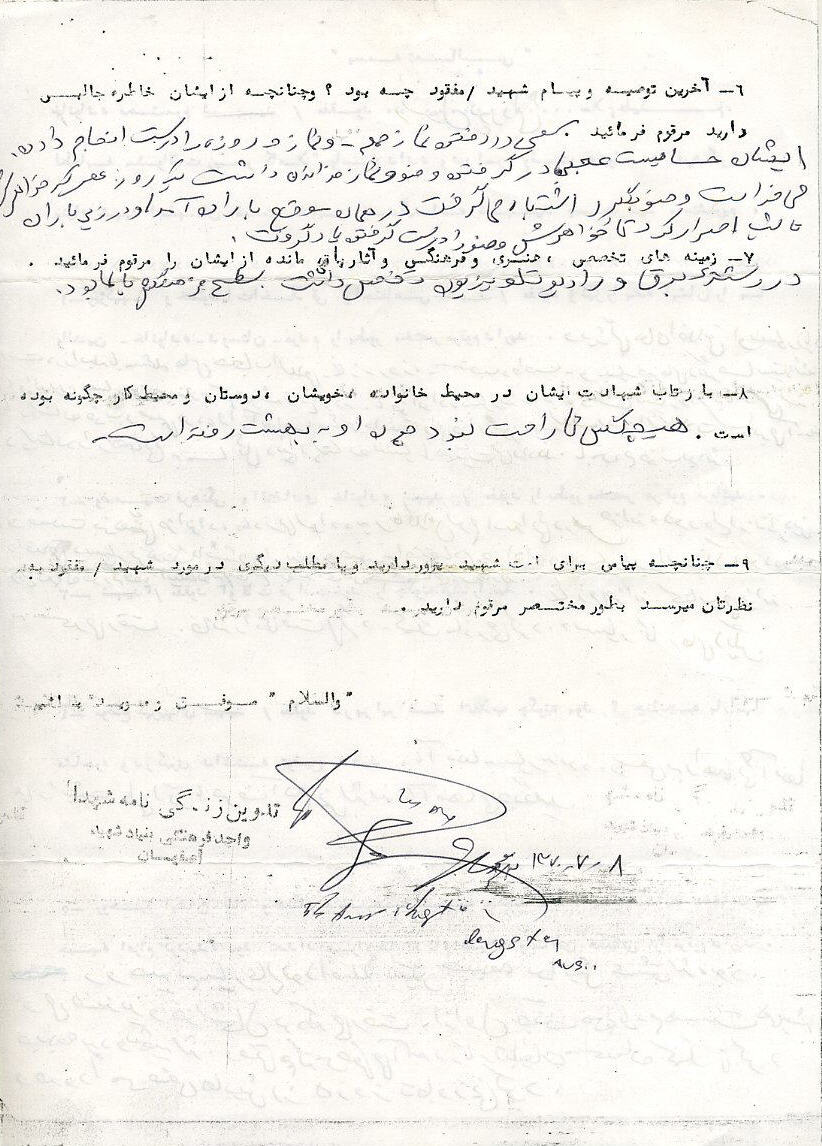 ۶- آخرین توصیه و پیام شهید /مفقود چه بود ؟ وچنانچه ازایشان خاطره جالبی
دارید مرقوم فرمائید . سعی در رفتن نماز جمعه - و نماز و روزه را درست انجام دادن.
ایشان حساسیت عجیبی در گرفتن وضو و نماز خواندن داشت یک روز عصر که خواهرش
می خواست وضو بگیرد اشتباه می گرفت در همان موقع باران آمد او در زیر باران
اصرار کرد تا خواهرش وضو را درست گرفتن یاد گرفت.
۷- زمینه های تخصصی ،هنری وفرهنگی وآثارباقی مانده ازایشان را مرقوم فرمائید .
در رشته برق و رادیو تلویزیون تخصص داشت سطح فرهنگش بالا بود.
۸- بازتاب شهادت ایشان در محیط خانواده ،خویشان ،دوستان ومحیط کار چگونه بوده
است . هیچکس ناراحت نبود چون او به بهشت رفته است.
۹- چنانچه پیامی برای امت شهید پرور دارید ویا مطلب دیگری در مورد شهید / مفقود به
نظرتان میرسد بطور مختصر مرقوم دارید .
"والسلام" موفق ومویدباشید
تدوین زندگی نامه شهدا
واحد فرهنگی بنیاد شهید
اصفهان
۱۳۷۰-۷-۸